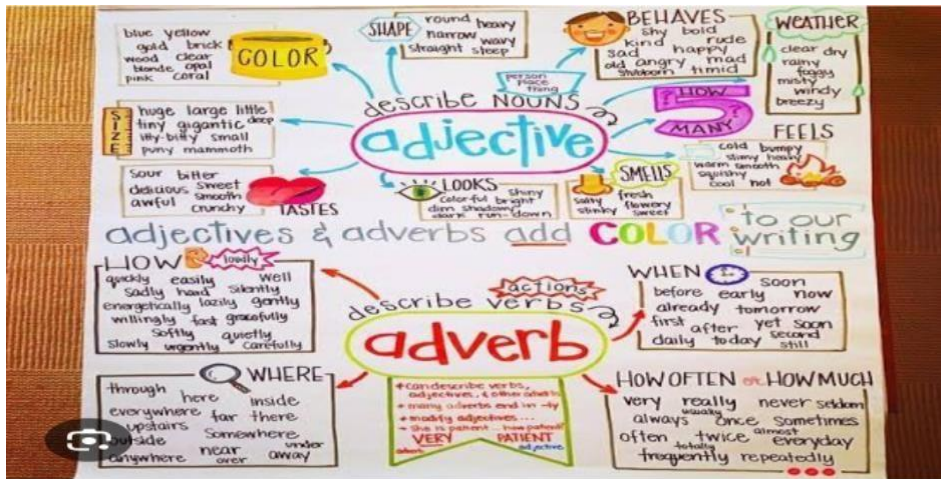 blue yellow
gold brick
wood clear
blonde opal
pink coral
COLOR
SHAPE
round heavy
narrow wavy
straight steep
BEHAVES
shy bold
kind rude
sad happy
old angry mad
stubborn timid
WEATHER
clear dry
rainy
foggy
misty
windy
breezy
person
place
thing
describe NOUNS
adjective
HOW
MANY
SIZE
huge large little
tiny gigantic deep
itty-bitty small
puny mammoth
FEELS
cold bumpy
slimy heavy
warm smooth
squishy
cool hot
sour bitter
delicious sweet
awful smooth
crunchy
TASTES
LOOKS
colorful shiny
bright
dim shadowy
dark run-down
SMELLS
fresh
salty flowery
stinky sweet
adjectives & adverbs add COLOR to our
writing
HOW loudly
quickly easily well
sadly hard silently
energetically lazily gently
willingly fast gracefully
softly quietly
slowly urgently carefully
actions
describe verbs
adverb
WHEN
soon
before early now
already tomorrow
first after yet soon
second
daily today still
WHERE
through here inside
everywhere far there
upstairs
outside somewhere
near under
anywhere over away
+ can describe verbs,
adjectives, & other adverbs
+ many adverbs end in -ly
+ modify adjectives...
+ She is patient... how patient?
VERY PATIENT
adverb adjective
HOW OFTEN or HOW MUCH
very really never seldom
usually
always once sometimes
almost
often twice everyday
totally
frequently repeatedly